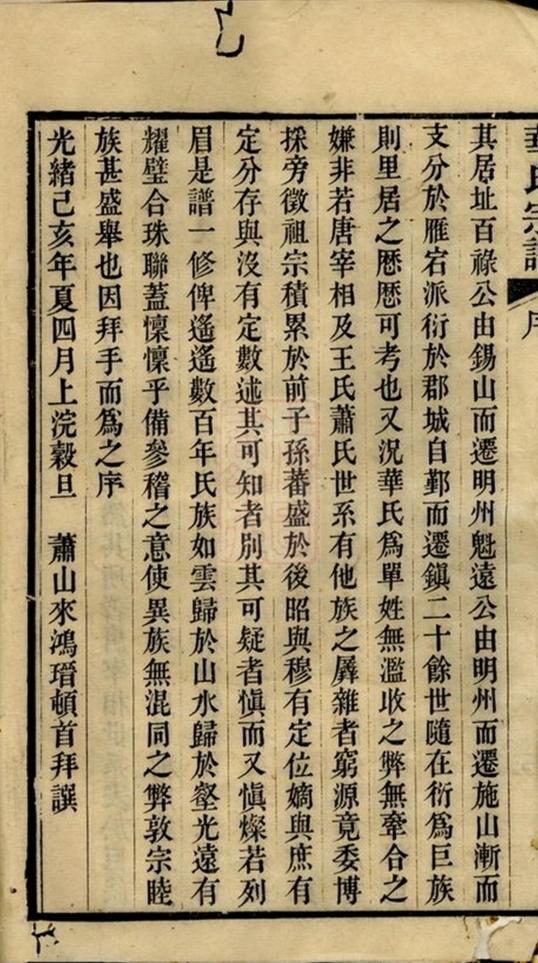 華氏宗譜
序
其居址百祿公由錫山而遷明州魁遠公由明州而遷施山漸而
支分於雁宕派衍於郡城自鄞而遷鎮二十餘世隨在衍為巨族
則里居之歷歷可考也又況華氏爲單姓無濫收之弊無牽合之
嫌非若唐宰相及王氏蕭氏世系有他族之羼雜者窮源竟委博
採旁徵祖宗積累於前子孫蕃盛於後昭與穆有定位嫡與庶有
定分存與沒有定數述其可知者別其可疑者愼而又愼燦若列
眉是譜一修俾遙遙數百年氏族如雲歸於山水歸於壑光遠有
耀璧合珠聯蓋懍懍乎備參稽之意使異族無混同之弊敦宗睦
族甚盛舉也因拜手而爲之序
光緒己亥年夏四月上浣穀旦　蕭山來鴻瑨頓首拜譔